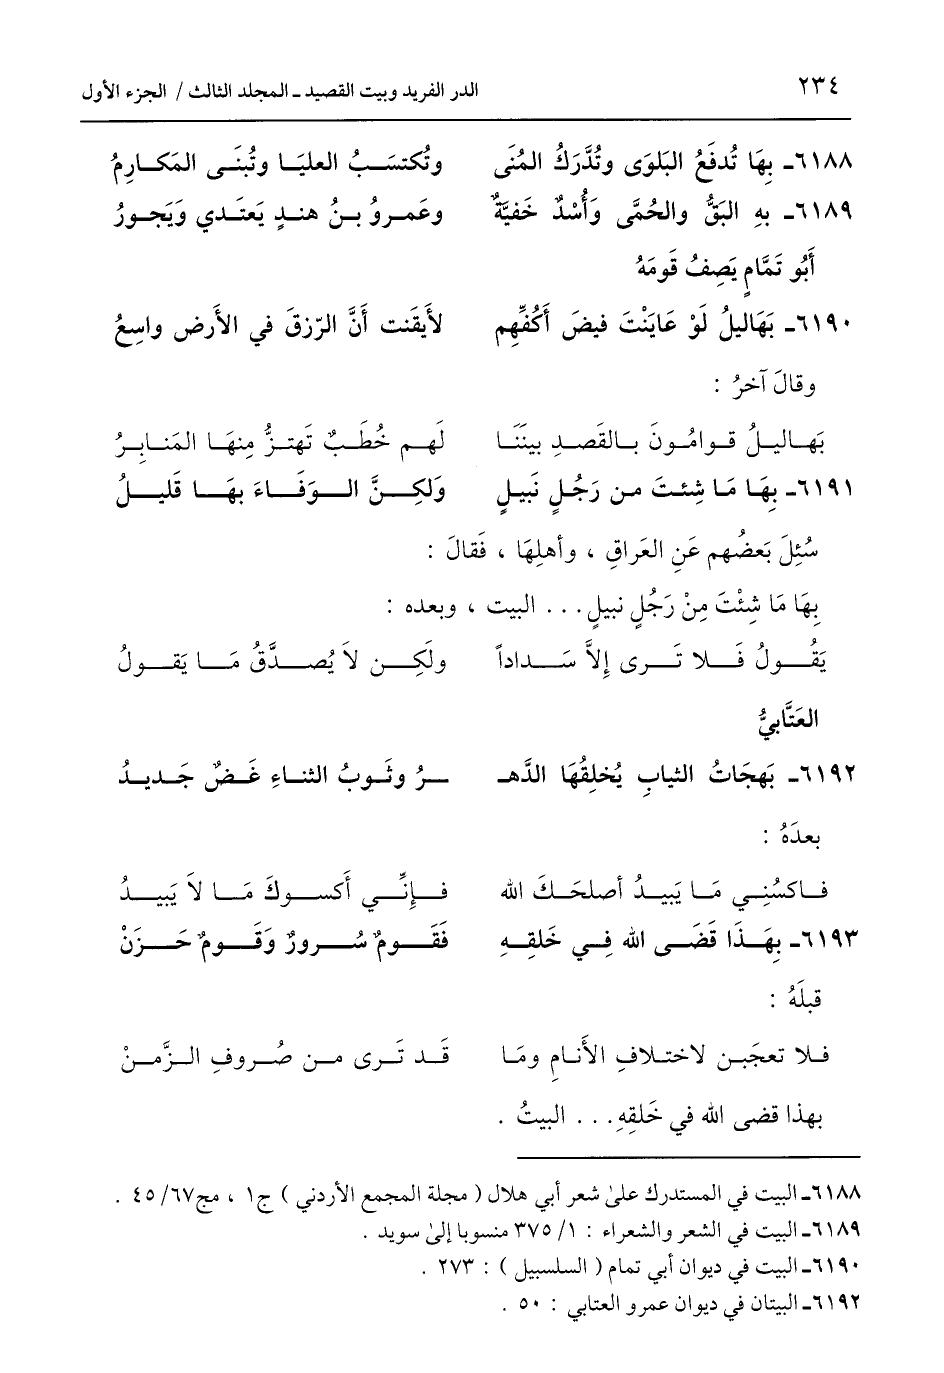 ٢٣٤
الدر الفريد وبيت القصيد ـ المجلد الثالث / الجزء الأول
٦١٨٨ـ بِهَا تُدفَعُ البَلوَى وتُدَّرَكُ المُنَى وتُكتسَبُ العليَا وتُبنَى المَكارِمُ
٦١٨٩ـ بِهِ البَقُّ والحُمَّى وَأُسْدٌ خَفيَّةٌ وعَمرو بنُ هندٍ يَعتَدي وَيَجورُ
أَبُو تَمَّامٍ يَصِفُ قَومَهُ
٦١٩٠ـ بَهَاليلُ لَوْ عَايَنْتَ فيضَ أَكُفِّهِم لأَيقَنت أَنَّ الرّزقَ في الأَرض واسِعُ
وقالَ آخرُ :
بَهاليلُ قوامُونَ بالقَصدِ بينَنَا لَهم خُطَبٌ تَهتزُّ مِنهَا المَنابِرُ
٦١٩١ـ بِهَا مَا شِئتَ من رَجُلٍ نَبيلٍ وَلكِنَّ الوَفَاءَ بهَا قَليلُ
سُئِلَ بَعضُهم عَنِ العَراقِ ، وأهلِهَا ، فَقالَ :
بِهَا مَا شِئْتَ مِنْ رَجُلٍ نبيلٍ . . . البيت ، وبعده :
يَقُولُ فَلا تَرى إلاَّ سَداداً ولَكِن لاَ يُصدَّقُ مَا يَقولُ
العَتَّابيُّ
٦١٩٢ـ بَهجَاتُ الثيابِ يُخلِقُهَا الدَّهـ ـرُ وثَوبُ الثناءِ غَضٌ جَديدُ
بعدَهُ :
فاكسُنِي مَا يَبيدُ أصلحَكَ الله فإِنِّي أَكسوكَ مَا لاَ يَبيدُ
٦١٩٣ـ بِهَذَا قَضَى الله فِي خَلقِهِ فَقَومٌ سُرورٌ وَقَومٌ حَزَنْ
قبلَهُ :
فلا تعجَبن لاختلافِ الأَنامِ ومَا قَد تَرى من صُروفِ الزَّمنْ
بهذا قضى الله في خَلقِهِ . . . البيتُ .
٦١٨٨ـ البيت في المستدرك علىٰ شعر أبي هلال ( مجلة المجمع الأردني ) ج١ ، مج٦٧/ ٤٥ .
٦١٨٩ـ البيت في الشعر والشعراء : ١/ ٣٧٥ منسوبا إلىٰ سويد .
٦١٩٠ـ البيت في ديوان أبي تمام ( السلسبيل ) : ٢٧٣ .
٦١٩٢ـ البيتان في ديوان عمرو العتابي : ٥٠ .